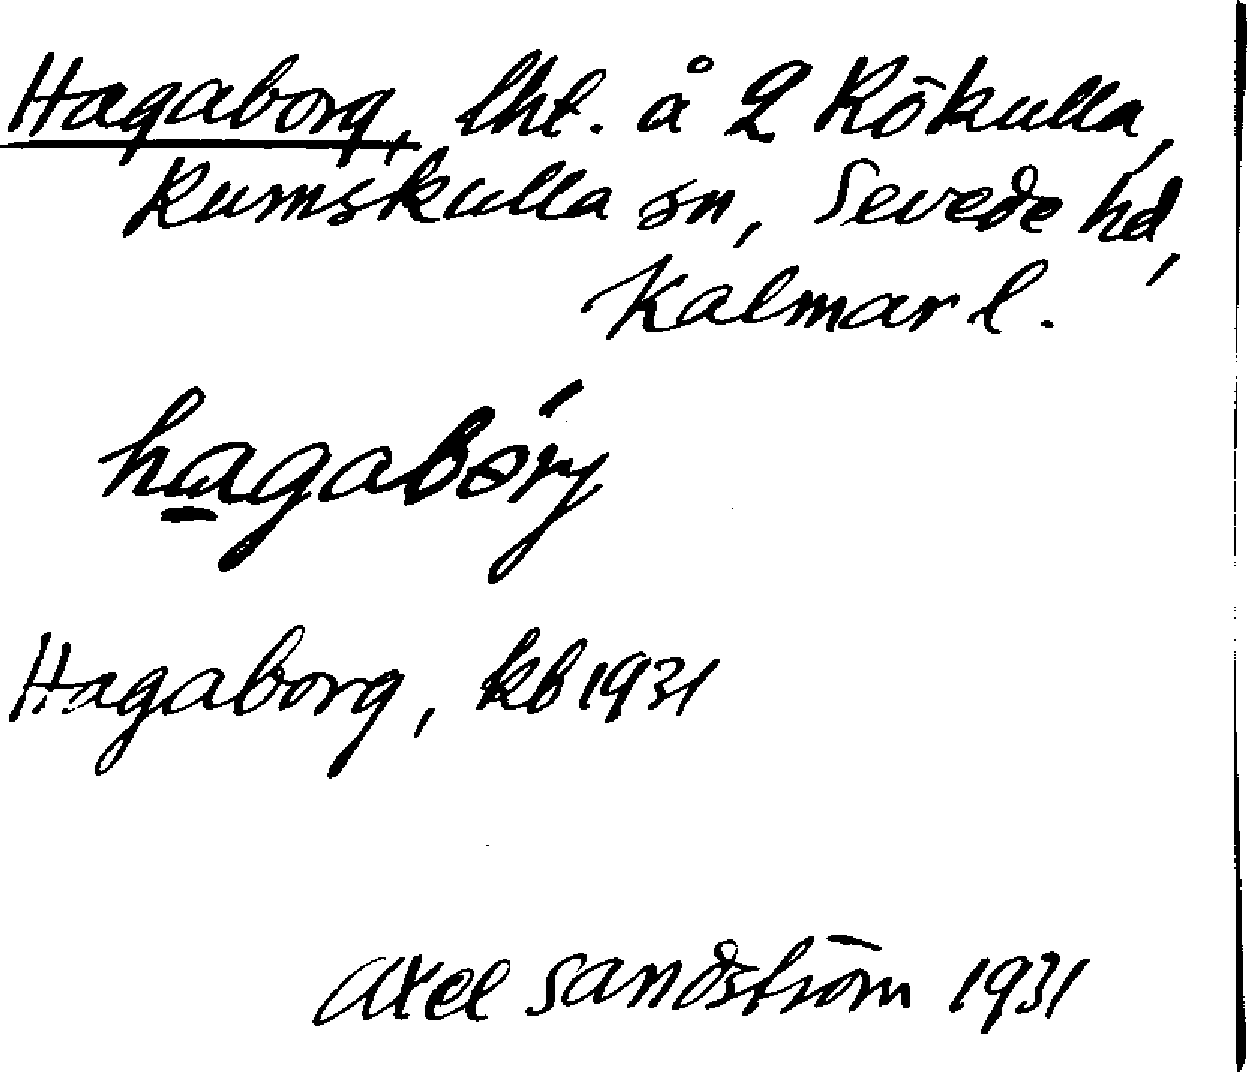 Hagaborg, lht. å 2 Rökulla,
Rumskulla sn, Sevede hd,
Kalmar l.
hagabórj
Hagaborg, kb 1931
Axel Sandström 1931